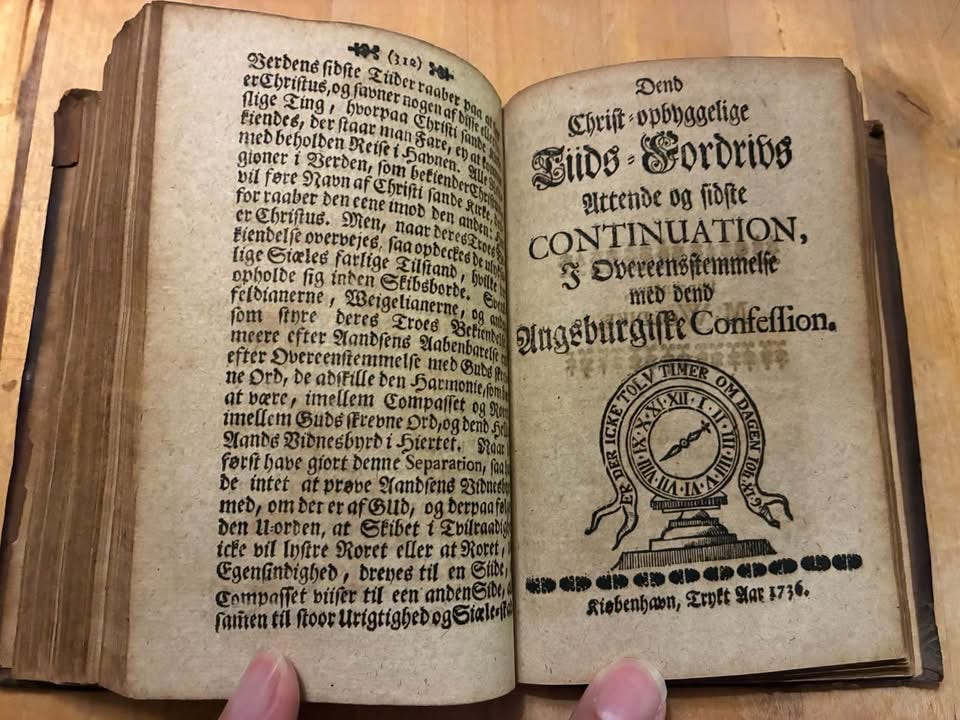 (312)
Verdens sidste Tiider raaber paa at
er Christus, og savner nogen af disse
slige Ting, hvorpaa Christi sande
kiendes, der staar man Fare, ey at
med beholden Reise i Havnen. Alle
gioner i Verden, som bekiender
vil føre Navn af Christi sande Kirke,
for raaber den eene imod den anden:
er Christus. Men, naar deres Troes
kiendelse overvejes, saa opdeckes de
lige Siæles farlige Tilstand, hvilke
opholde sig inden Skibsborde.
feldianerne, Weigelianerne, og
som styre deres Troes Bekiendelse
meere efter Aandsens Aabenbarelse
efter Overeenstemmelse med Guds
ne Ord, de adskille den Harmonie, som
at være, imellem Compasset og
imellem Guds skrevne Ord, og dend
Aands Vidnesbyrd i Hiertet. Naar
først have giort denne Separation, saa
de intet at prøve Aandsens
med, om det er af GUd, og derpaa
den U-orden, at Skibet i
icke vil lystre Roret eller at Roret,
Egensindighed, dreyes til en Side,
Compasset viiser til een anden Side,
sam̃en til stoor Urigtighed og
Dend
Christ-opbyggelige
Tiids-Fordrivs
Attende og sidste
CONTINUATION,
I Overeensstemmelse
med dend
Augsburgiske Confession.
ER DER ICKE TOLV TIMER OM DAGEN JOH. IX. 9.
XII I II III IIII V VI VII VIII IX X XI
Kiøbenhavn, Trykt Aar 1736.